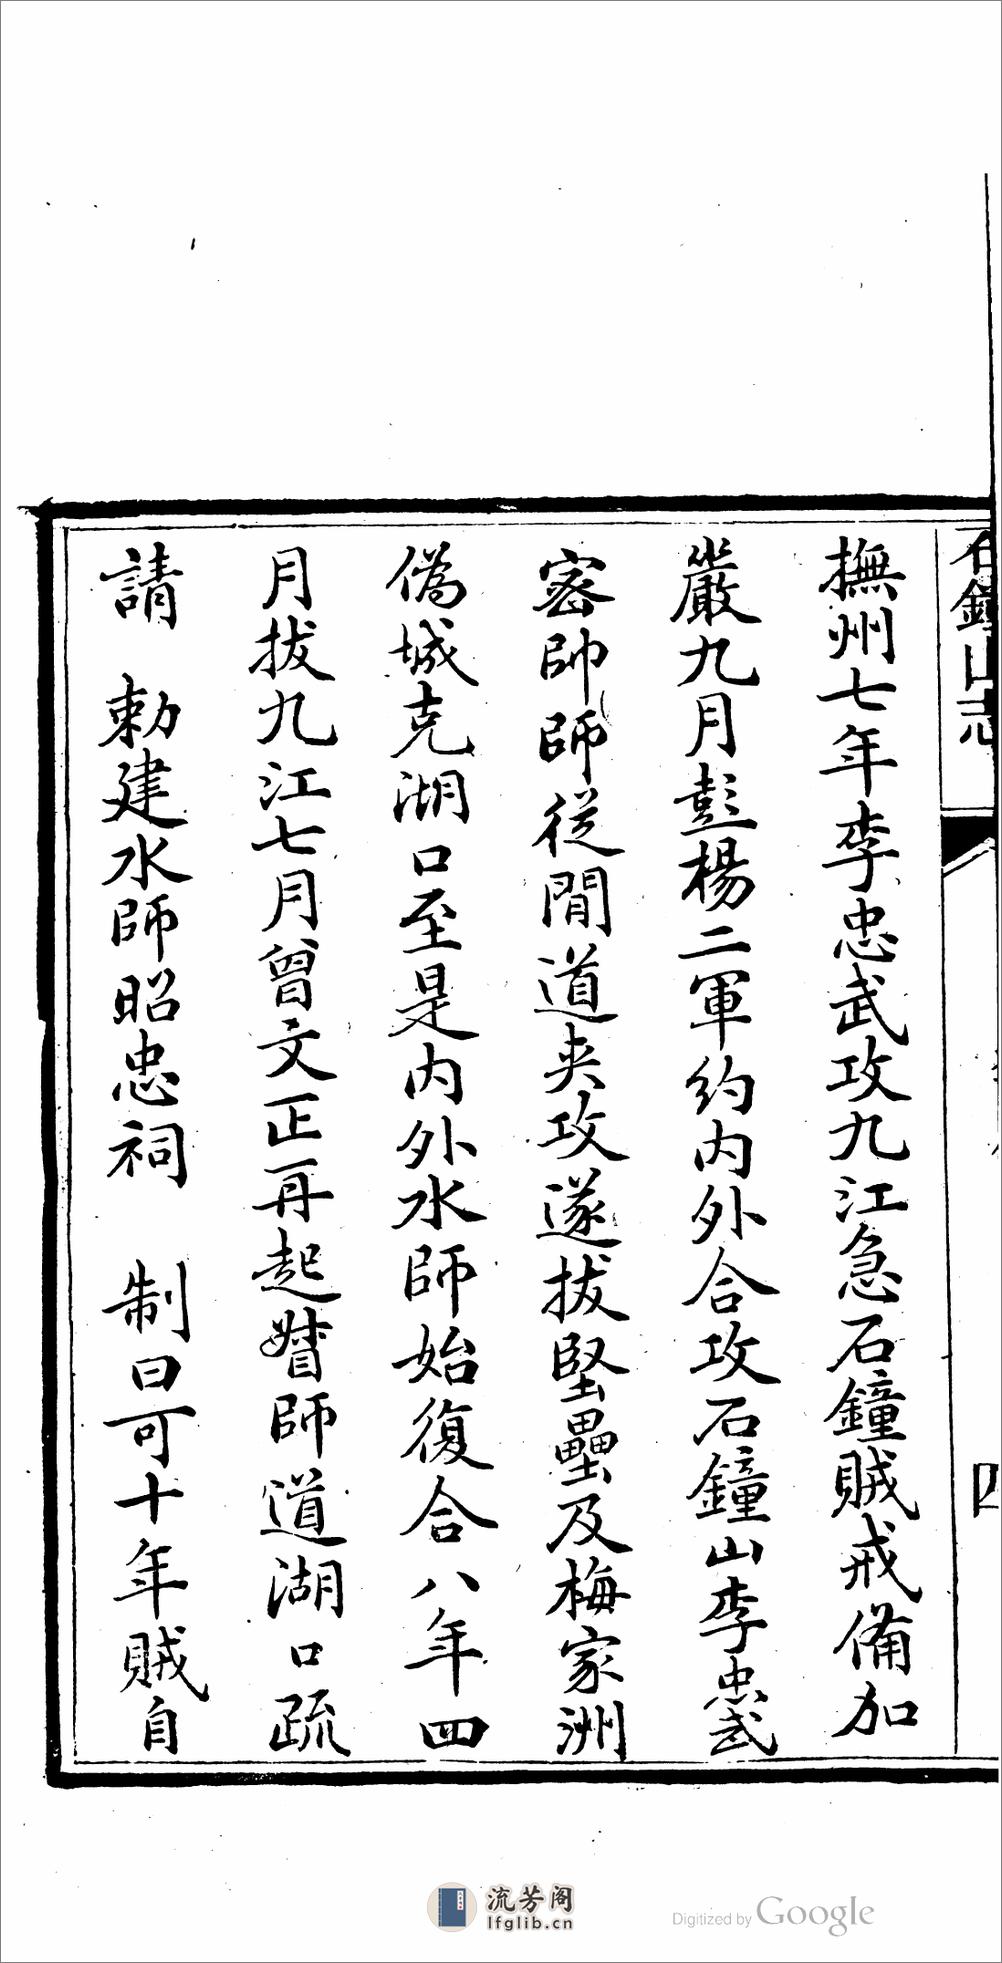 石鐘山志
四
撫州七年李忠武攻九江急石鐘賊戒備加
嚴九月彭楊二軍約內外合攻石鐘山李忠武
密帥師從間道夾攻遂拔堅壘及梅家洲
偽城克湖口至是內外水師始復合八年四
月拔九江七月曾文正再起督師道湖口疏
請 勅建水師昭忠祠 制曰可十年賊自
流芳阁
lfglib.cn
Digitized by Google